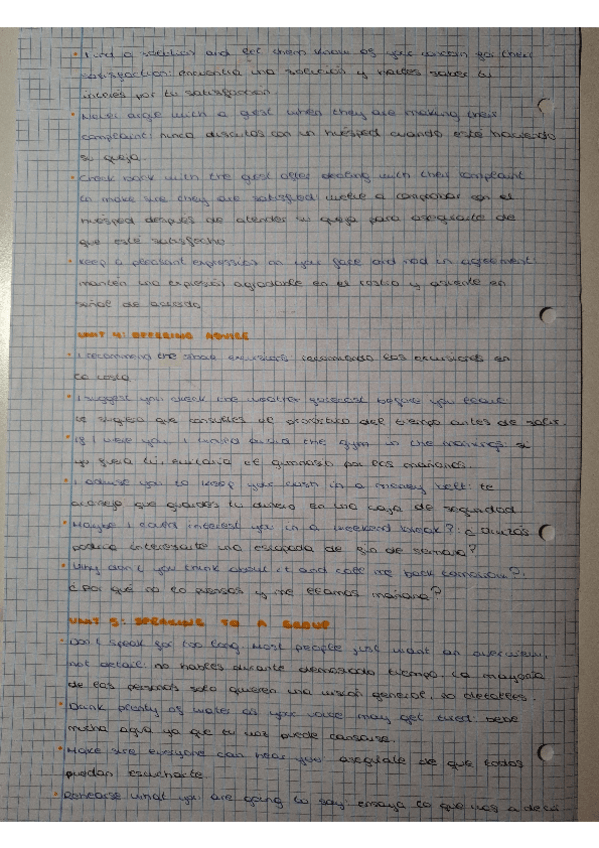 · Find a solution and let them know of your concern for their
satisfaction: encuentra una solución y hazles saber tu
interés por tu satisfacción.
· Never argue with a guest when they are making their
complaint: nunca discutas con un huésped cuando esté haciendo
su queja.
· Check back with the guest after dealing with their complaint
to make sure they are satisfied: vuelve a comprobar con el
huésped después de atender su queja para asegurarte de
que esté satisfecho.
· Keep a pleasant expression on your face and nod in agreement:
mantén una expresión agradable en el rostro y asiente en
señal de acuerdo.
UNIT 4: OFFERING ADVICE
· I recommend the shore excursions: recomiendo las excursiones en
la costa
· I suggest you check the weather forecast before you leave:
te sugiero que consultes el pronóstico del tiempo antes de salir.
· If I were you, I would avoid the gym in the mornings: si
yo fuera tú, evitaría el gimnasio por las mañanas.
· I advise you to keep your cash in a money belt: te
aconsejo que guardes tu dinero en una caja de seguridad
· Maybe I could interest you in a weekend break?: ¿Quizás
podría interesarte una escapada de fin de semana?
· Why don't you think about it and call me back tomorrow?:
¿Por qué no lo piensas y me llamas mañana?
UNIT 5: SPEAKING TO A GROUP
· Don't speak for too long. Most people just want an overview,
not detail: no hables durante demasiado tiempo. La mayoría
de las personas solo quieren una visión general, no detalles.
· Drink plenty of water as your voice may get tired: bebe
mucha agua ya que tu voz puede cansarse.
· Make sure everyone can hear you: asegúrate de que todos
puedan escucharte.
· Rehearse what you are going to say: ensaya lo que vas a decir